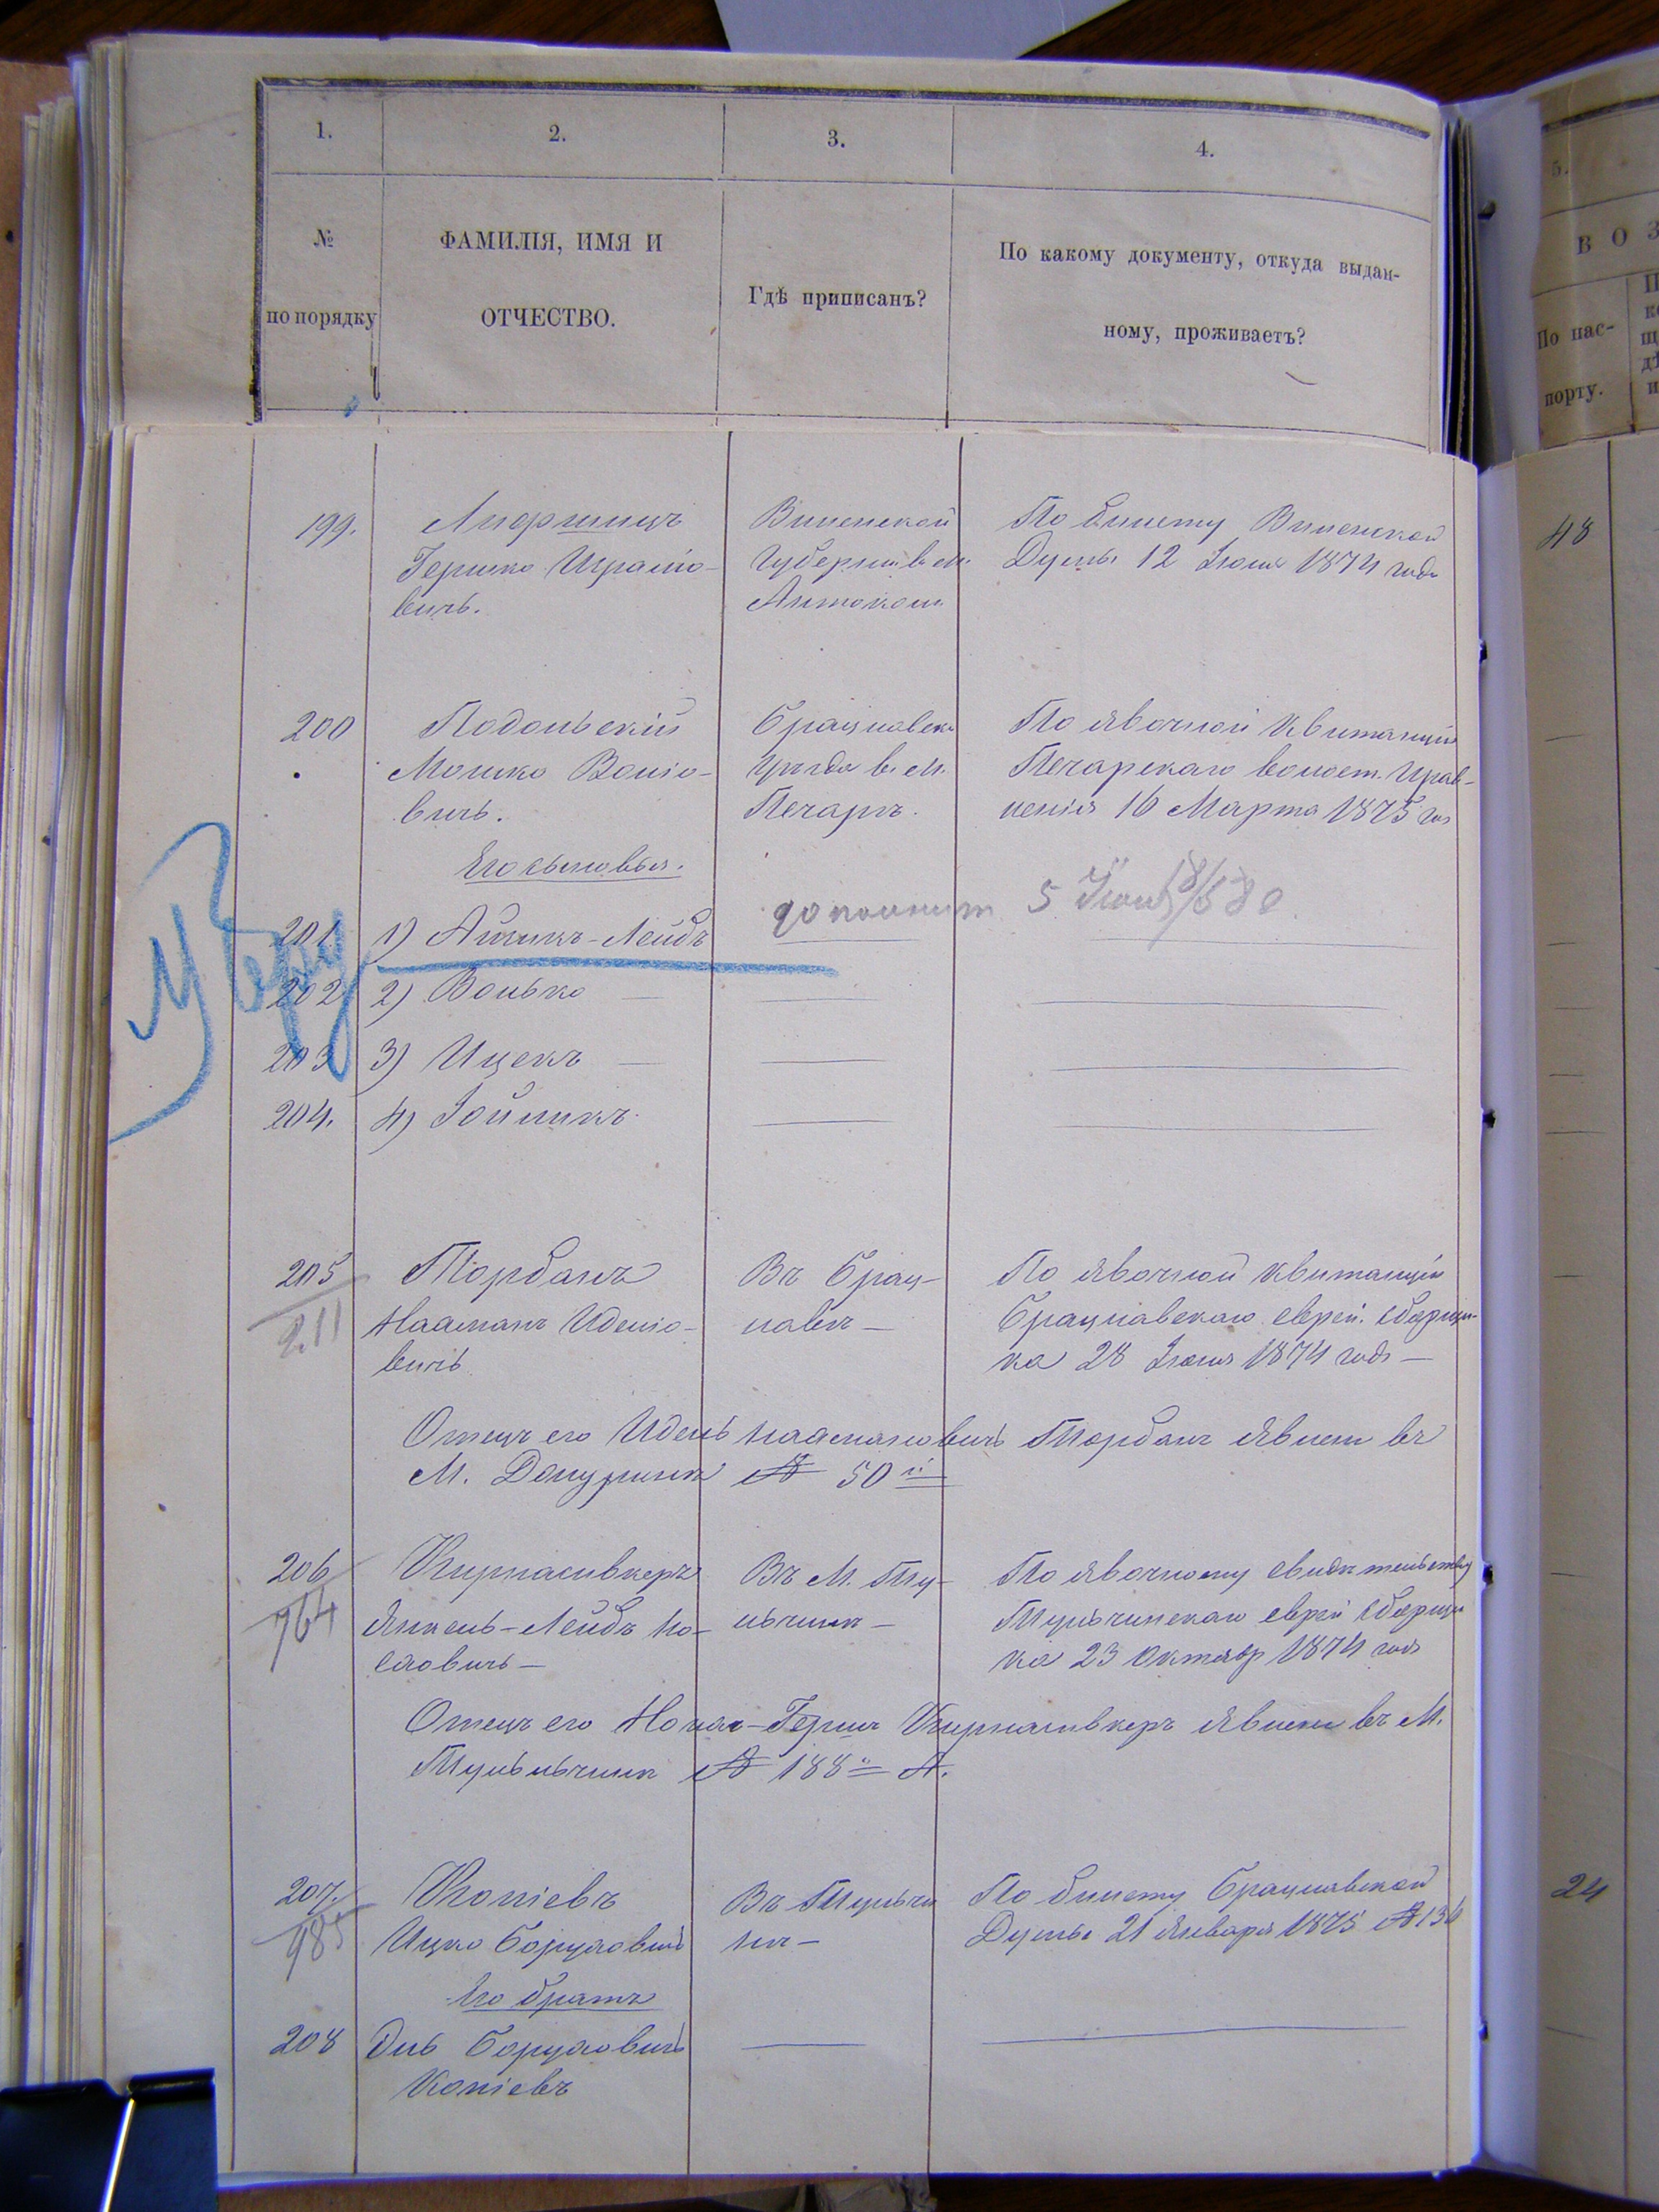 1.
2.
3.
4.
5.
№
по порядку
ФАМИЛІЯ, ИМЯ И
ОТЧЕСТВО.
Гдѣ приписанъ?
По какому документу, откуда выдан-
ному, проживаетъ?
В О З
По пас-
порту.
199.
Гершко Шраліо-
вичъ.
Виленской
Губерніи въ м.
По билету Виленской
Думы 12 Іюня 1874 года
48
200
Подольскій
Мошко Воліо-
вичъ.
Брацлавска
уѣзда въ м.
Печарѣ.
По явочной квитанціи
Печарскаго волост. Прав-
ленія 16 Марта 1875 го
Его сыновья.
201
1) Айзикъ-Лейбъ
5 Іюня
202
2) Волько
203
3) Ицекъ
204.
4) Іойликъ.
205
211
Торбанъ
Нахманъ Иделіо-
вичъ
Въ Брац-
лавѣ —
По явочной квитанціи
Брацлавскаго еврей. сборщи-
ка 28 Іюня 1874 года —
Отецъ его Идель Нахмановичъ Торбанъ явлен въ
М. № 50й
206
764
Кирнасивкеръ
Янкель-Лейбъ Но-
хаовичъ —
Въ М. Ту-
льчинѣ —
По явочному свидѣтельству
Тульчинскаго еврей сборщи
ка 23 Октябр 1874 года
Отецъ его Герш Кирнасивкеръ явленъ въ М.
№ 188й А.
207.
985
Копіевъ
Ицко Боруховичъ
Въ Тульчи
нѣ —
По билету Брацлавской
Думы 21 Января 1875 № 136
24
Его братъ
208
Боруховичъ
Копіевъ